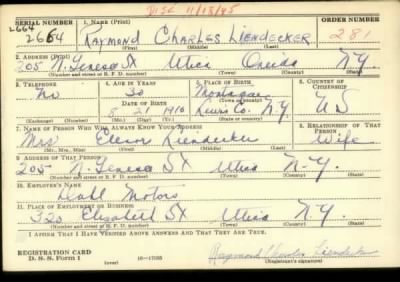 DISC 11/15/45
SERIAL NUMBER 1. NAME (Print) ORDER NUMBER
2664
2664 RAYMOND CHARLES LIENDECKER 281
(First) (Middle) (Last)
2. ADDRESS (Print)
205 N. Genesee St Utica Oneida N.Y.
(Number and street or R. F. D. number) (Town) (County) (State)
3. TELEPHONE 4. AGE IN YEARS 5. PLACE OF BIRTH 6. COUNTRY OF CITIZENSHIP
No 30 Montague
DATE OF BIRTH (Town or county)
8 21 1910 Lewis Co. N.Y. US
(Exchange) (Number) (Mo.) (Day) (Yr.) (State or country)
7. NAME OF PERSON WHO WILL ALWAYS KNOW YOUR ADDRESS 8. RELATIONSHIP OF THAT PERSON
Mrs. Eleanor Liendecker Wife
(Mr., Mrs., Miss) (First) (Middle) (Last)
9. ADDRESS OF THAT PERSON
205 N. Genesee St Utica N-Y.
(Number and street or R. F. D. number) (Town) (County) (State)
10. EMPLOYER'S NAME
Motors
11. PLACE OF EMPLOYMENT OR BUSINESS
320 Elizabeth St Utica N.Y.
(Number and street or R. F. D. number) (Town) (County) (State)
I AFFIRM THAT I HAVE VERIFIED ABOVE ANSWERS AND THAT THEY ARE TRUE.
REGISTRATION CARD
D. S. S. Form 1 (over) 16—17105 Raymond Charles Liendecker
(Registrant's signature)